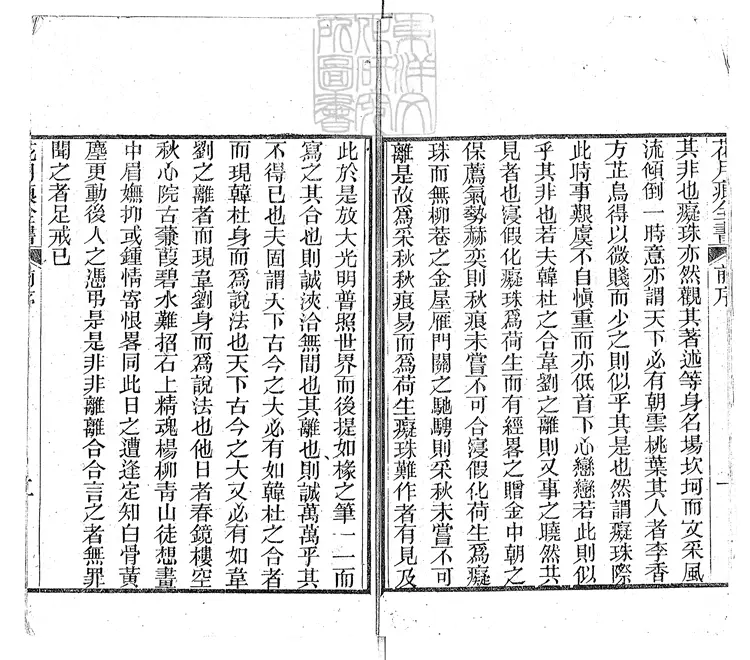 花月痕全書 前序
其非也癡珠亦然觀其著述等身名場坎坷而文采風
流傾倒一時意亦謂天下必有朝雲桃葉其人者李香
方芷烏得以微賤而少之則似乎其是也然謂癡珠際
此時事艱虞不自慎重而亦低首下心戀戀若此則似
乎其非也若夫韓杜之合韋劉之離則又事之曉然共
見者也寖假化癡珠爲荷生而有經畧之贈金中朝之
保薦氣勢赫奕則秋痕未嘗不可合寖假化荷生爲癡
珠而無柳巷之金屋雁門關之馳騁則采秋未嘗不可
離是故爲采秋秋痕易而爲荷生癡珠難作者有見及
此於是放大光明普照世界而後提如椽之筆一一而
寫之其合也則誠浹洽無間也其離也則誠萬萬乎其
不得已也夫固謂天下古今之大必有如韓杜之合者
而現韓杜身而爲說法也天下古今之大又必有如韋
劉之離者而現韋劉身而爲說法也他日者春鏡樓空
秋心院古蒹葭碧水難招石上精魂楊柳青山徒想畫
中眉嫵抑或鍾情寄恨畧同此日之遭逢定知白骨黃
塵更動後人之憑弔是是非非離離合合言之者無罪
聞之者足戒已
花月痕全書 前序
東洋文化研究所圖書